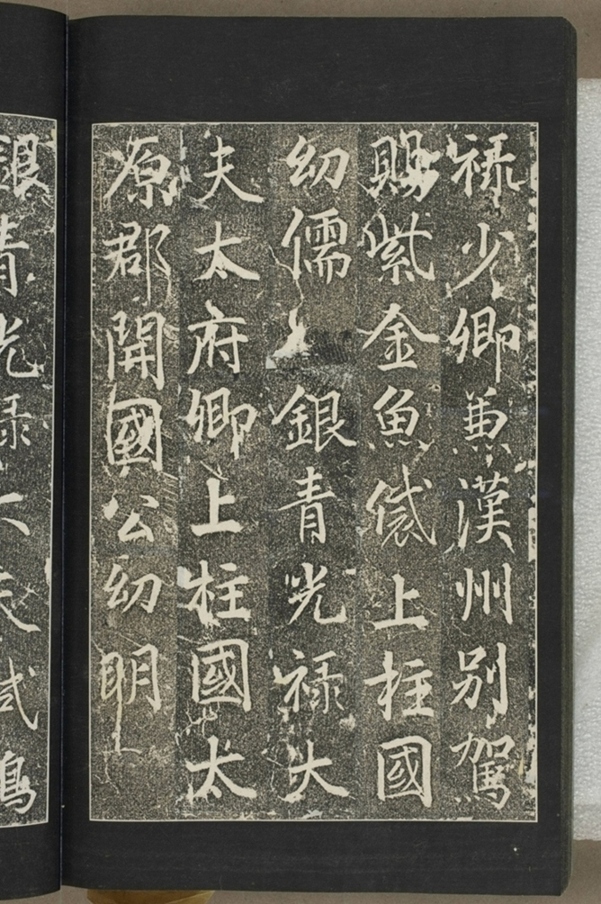 禄少卿兼漢州别駕
賜紫金魚袋上柱國
幼儒上銀青光禄大
夫太府卿上柱國太
原郡開國公幼明
銀青光禄大夫試鴻